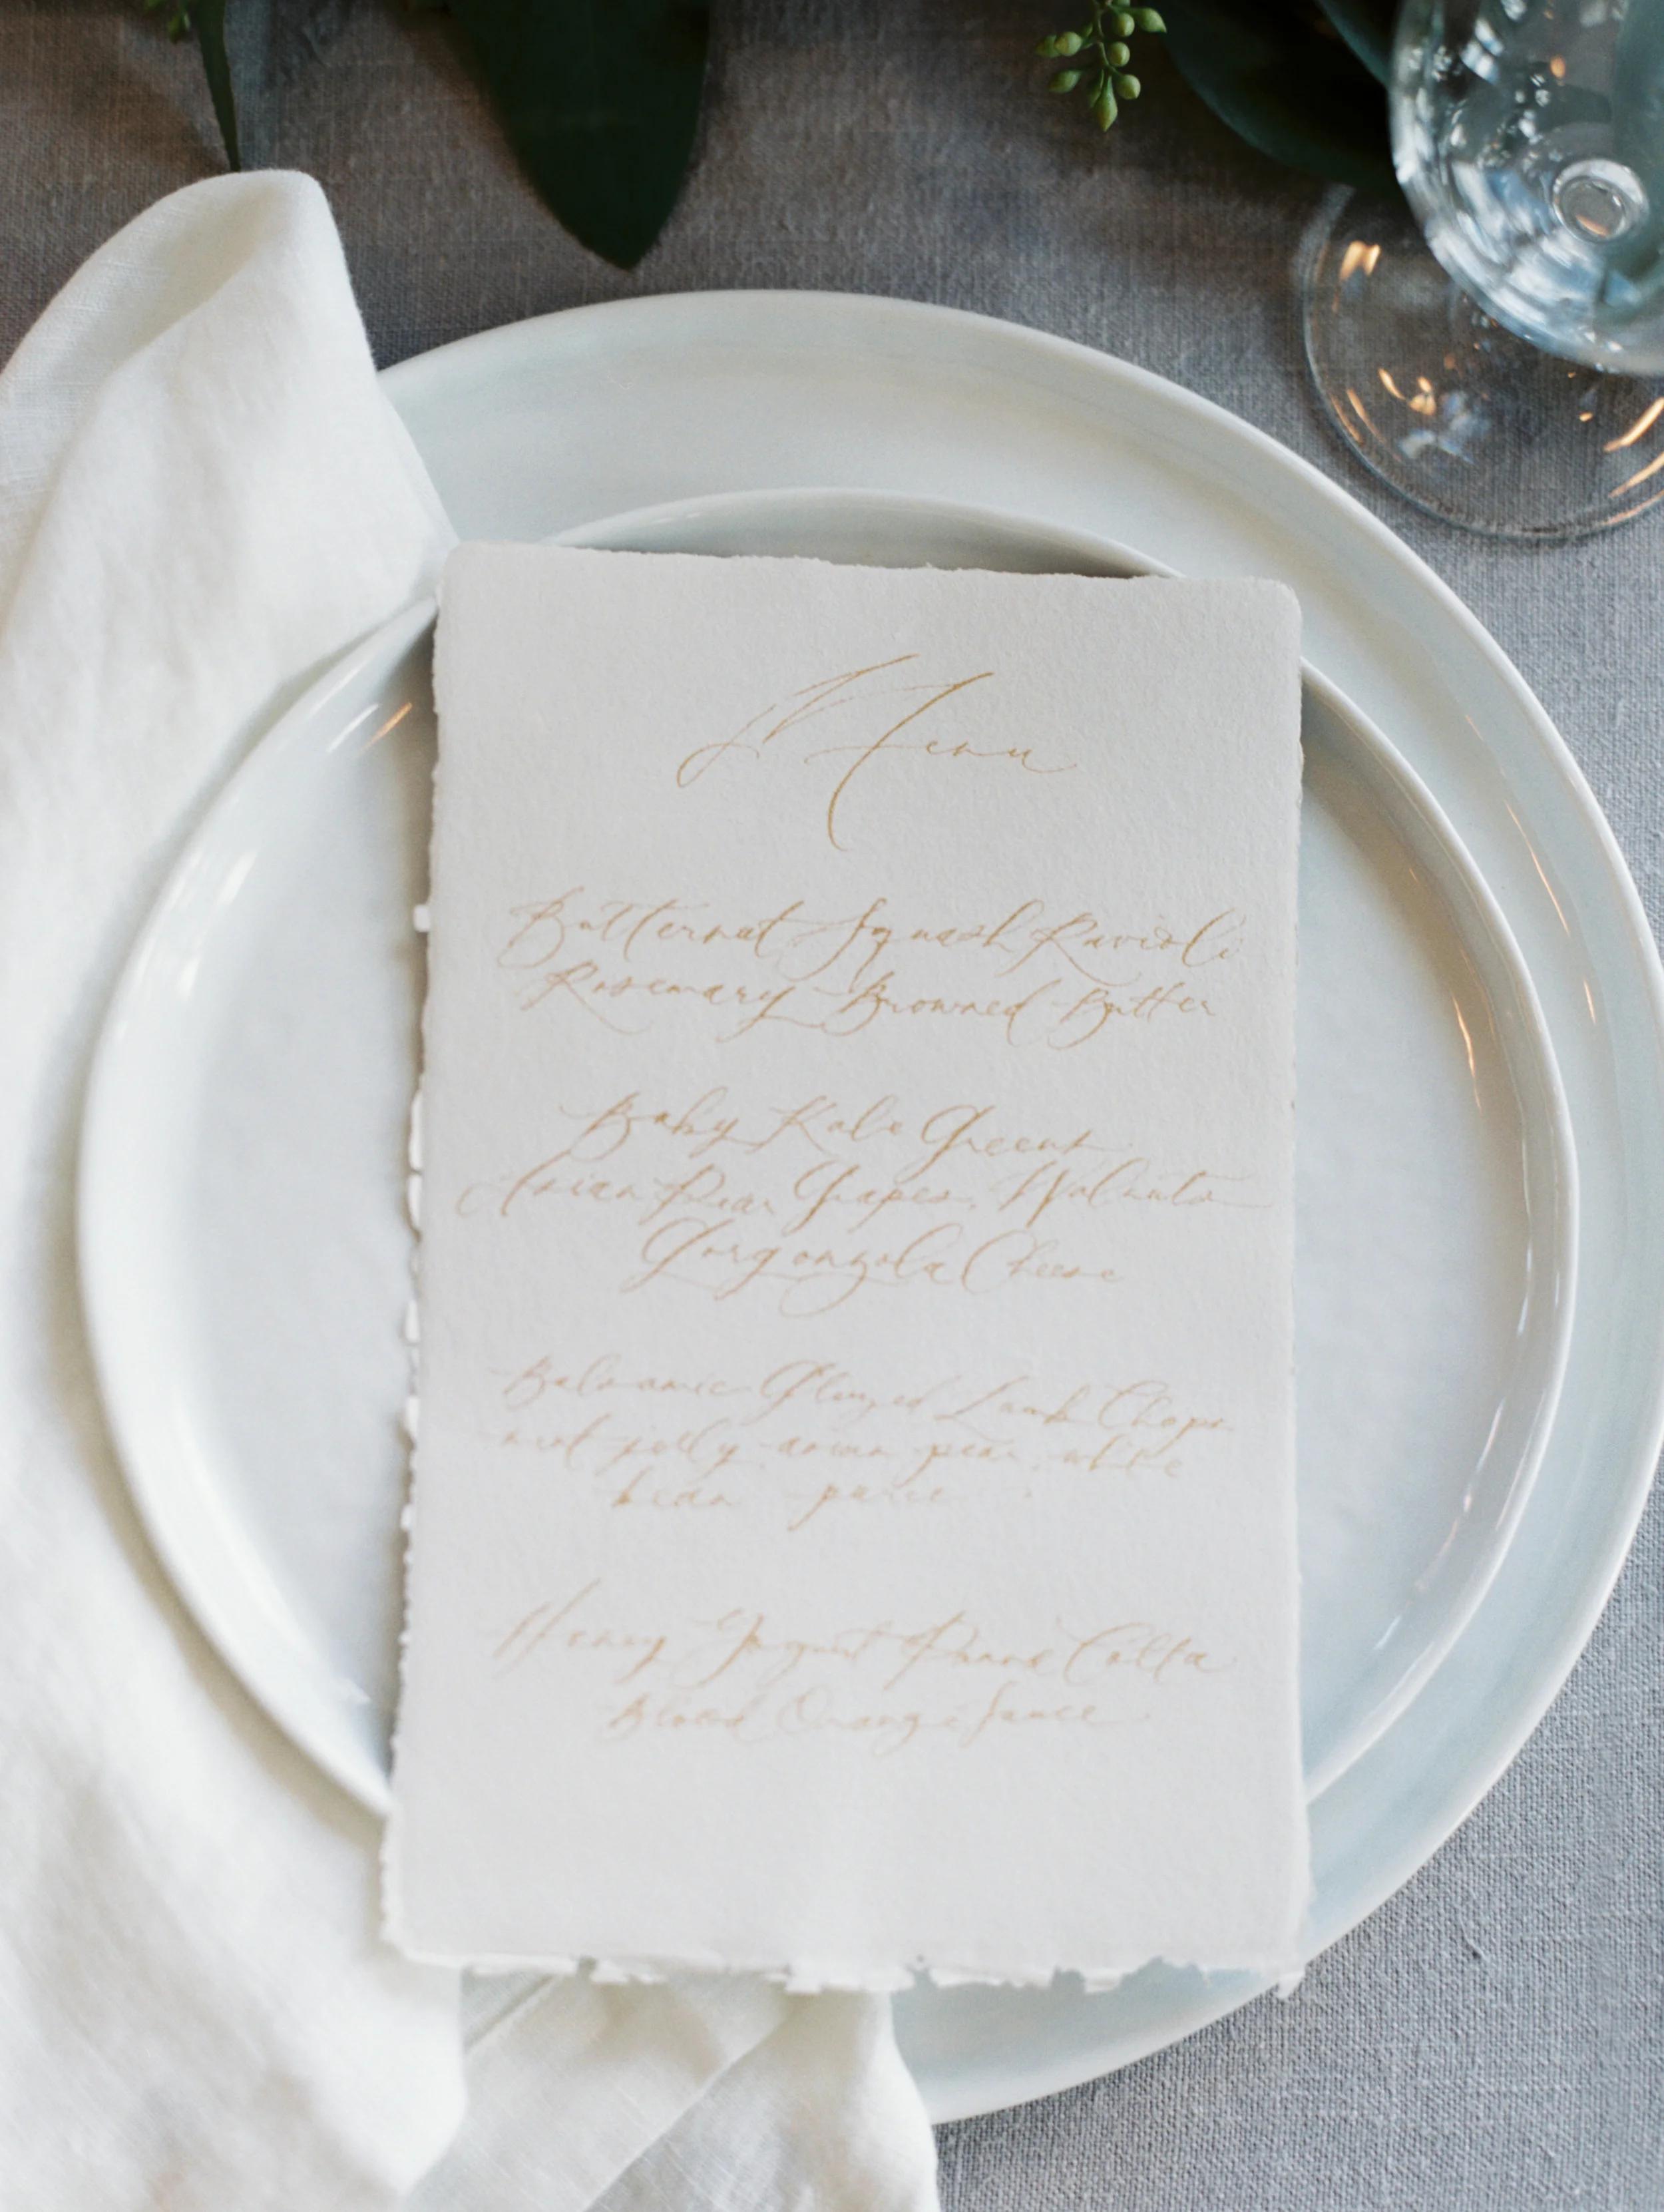 Menu
Butternut Squash Ravioli
Rosemary Browned Butter
Baby Kale Greens
Asian Pear, Grapes, Walnuts
Gorgonzola Cheese
Balsamic Glazed Lamb Chops
mint jelly, asian pear, white
bean puree
Honey Yogurt Panna Cotta
Blood Orange Sauce